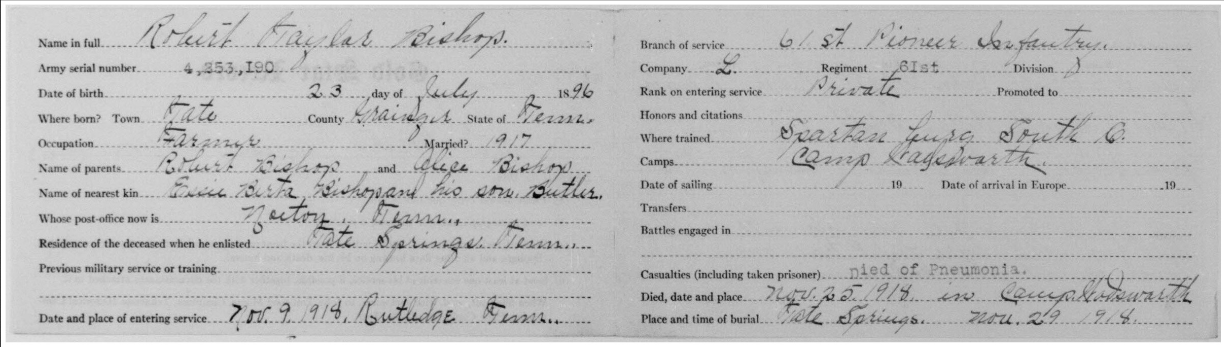 Name in full Robert Taylor Bishop.
Army serial number 4,253,190
Date of birth 23 day of July 1896
Where born? Town Tate County Grainger State of Tenn.
Occupation Farmer Married? 1917
Name of parents Robert Bishop and Alice Bishop
Name of nearest kin Birta Bishop an his son Butler.
Whose post-office now is Tenn.,
Residence of the deceased when he enlisted Tate Springs Tenn..
Previous military service or training
Date and place of entering service Nov. 9, 1918, Rutledge Tenn..
Branch of service 61st Pioneer Infantry.
Company L. Regiment 61st Division
Rank on entering service Private Promoted to
Honors and citations
Where trained Spartanburg South C.
Camps Camp Wadsworth.
Date of sailing 19 Date of arrival in Europe 19
Transfers
Battles engaged in
Casualties (including taken prisoner) Died of Pneumonia.
Died, date and place Nov. 25, 1918. in Camp Wodsworth
Place and time of burial Tate Springs. Nov. 29 1918.